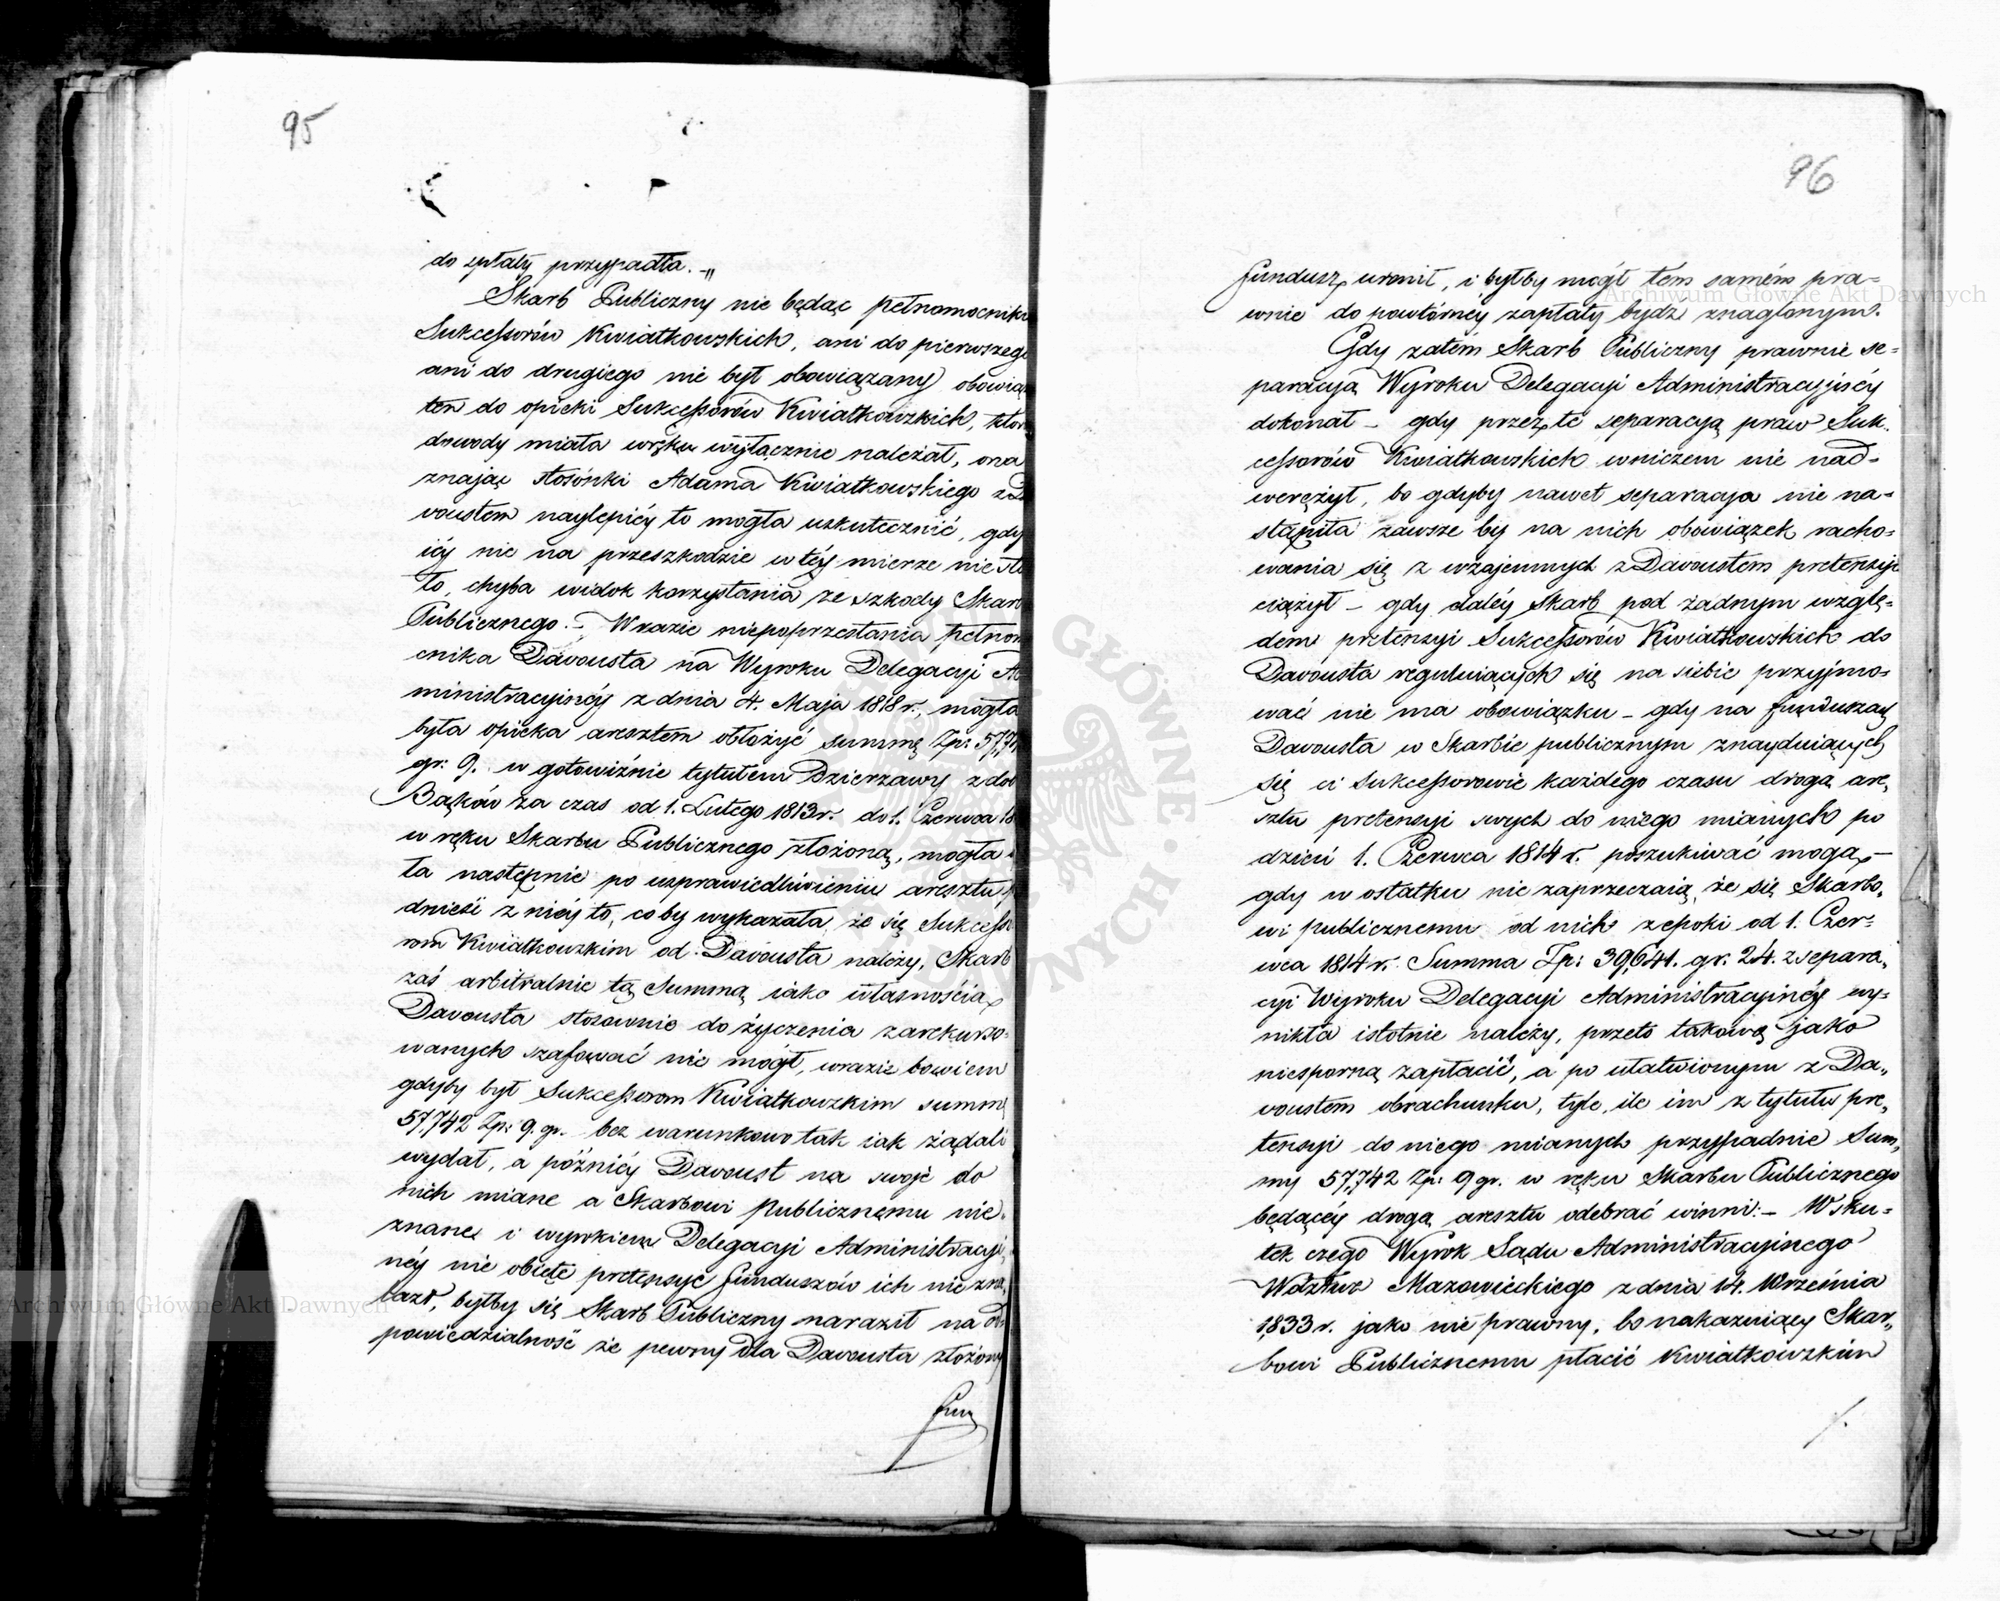 95
do spłaty przypadła. –„
Skarb Publiczny nie będąc pełnomocniki
Sukcessorów Kwiatkowskich, ani do pierwszego
ani do drugiego nie był obowiązany obowią
ten do opieki Sukcessorów Kwiatkowskich, która
dowody miała wręku wyłącznie należał, ona
znając stosónki Adama Kwiatkowskiego z Da
voustem naylepiéy to mogła uskutecznić, gdy
iéy nic na przeszkodzie w téy mierze nie sta
ło, chyba widok korzystania ze szkody Skar
Publicznego. – Wrazie niepoprzestania pełno
cnika Davousta na Wyroku Delegacyi Ad
ministracyinéy z dnia 4. Maja 1818 r., mogła
była opieka aresztem obłożyć summę Zp: 57,7
gr: 9. w gotowiźnie tytułem Dzierzawy z dób
Bąków za czas od 1. Lutego 1813 r. do 1. Czerwca 18
w ręku Skarbu Publicznego złożoną, mogła
ta następnie po usprawiedliwieniu aresztu p
dnieść z niéy to, coby wykazała, że się Sukcesso
rom Kwiatkowskim od Davousta należy. Skarb
zaś arbitralnie tą Summą iako własnością
Davousta stosownie do życzenia zarekurso-
wanych szafować nie mógł, wrazie bowiem
gdyby był Sukcessorom Kwiatkowskim summę
57,742 Zp: 9. gr. bez warunkowo tak iak żądali
wydał, a późniéy Davoust na swoje do
nich miane a Skarbowi Publicznemu nie-
znane i wyrokiem Delegacyi Administracyi
néy nie obięte pretensye funduszów ich nie zna-
lazł, byłby się Skarb Publiczny naraził na od-
powiedzialność że pewny dla Davousta złożony
fun
96
fundusz uronił, i byłby mógł tém samém pra-
wnie do powtórnéy zapłaty bydź znaglonym.
Gdy zatém Skarb Publiczny prawnie se-
paracyą Wyroku Delegacyi Administracyjnéy
dokonał – gdy przez tę separacyą praw Suk-
cessorów Kwiatkowskich wniczem nie nad-
werężył, bo gdyby nawet separacya nie na-
stąpiła zawsze by na nich obowiązek racho-
wania się z wzajemnych z Davoustem pretensyi
ciążył – gdy daléy Skarb pod żadnym wzglę-
dem pretensyi Sukcessorów Kwiatkowskich do
Davousta reguluiących się na siebie przyjmo-
wać nie ma obowiązku – gdy na funduszach
Davousta w Skarbie publicznym znayduiących
się ci Sukcessorowie każdego czasu drogą are-
sztu pretensyi swych do niego mianych po
dzień 1. Czerwca 1814 r. poszukiwać mogą –
gdy w ostatku nie zaprzeczaią, że się Skarbo-
wi publicznemu od nich z epoki od 1. Czer-
wca 1814 r. Summa Zp: 39,641. gr. 24. z separa-
cyi Wyroku Delegacyi Administracyinéy wy-
nikła istotnie należy, przeto takową jako
niesporną zapłacić, a po ułatwionym z Da-
voustem obrachunku, tyle, ile im z tytułu pre-
tensyi do niego mianych przypadnie Sum-
my 57,742 Zp: 9 gr. w ręku Skarbu Publicznego
będącéy drogą aresztu odebrać winni: – Wsku-
tek czego Wyrok Sądu Administracyinego
Wdztwa Mazowieckiego z dnia 14. Września
1833 r. jako nie prawny, bo nakazuiący Skar-
bowi Publicznemu płacić Kwiatkowskim
/.
Archiwum Główne Akt Dawnych
Archiwum Główne Akt Dawnych